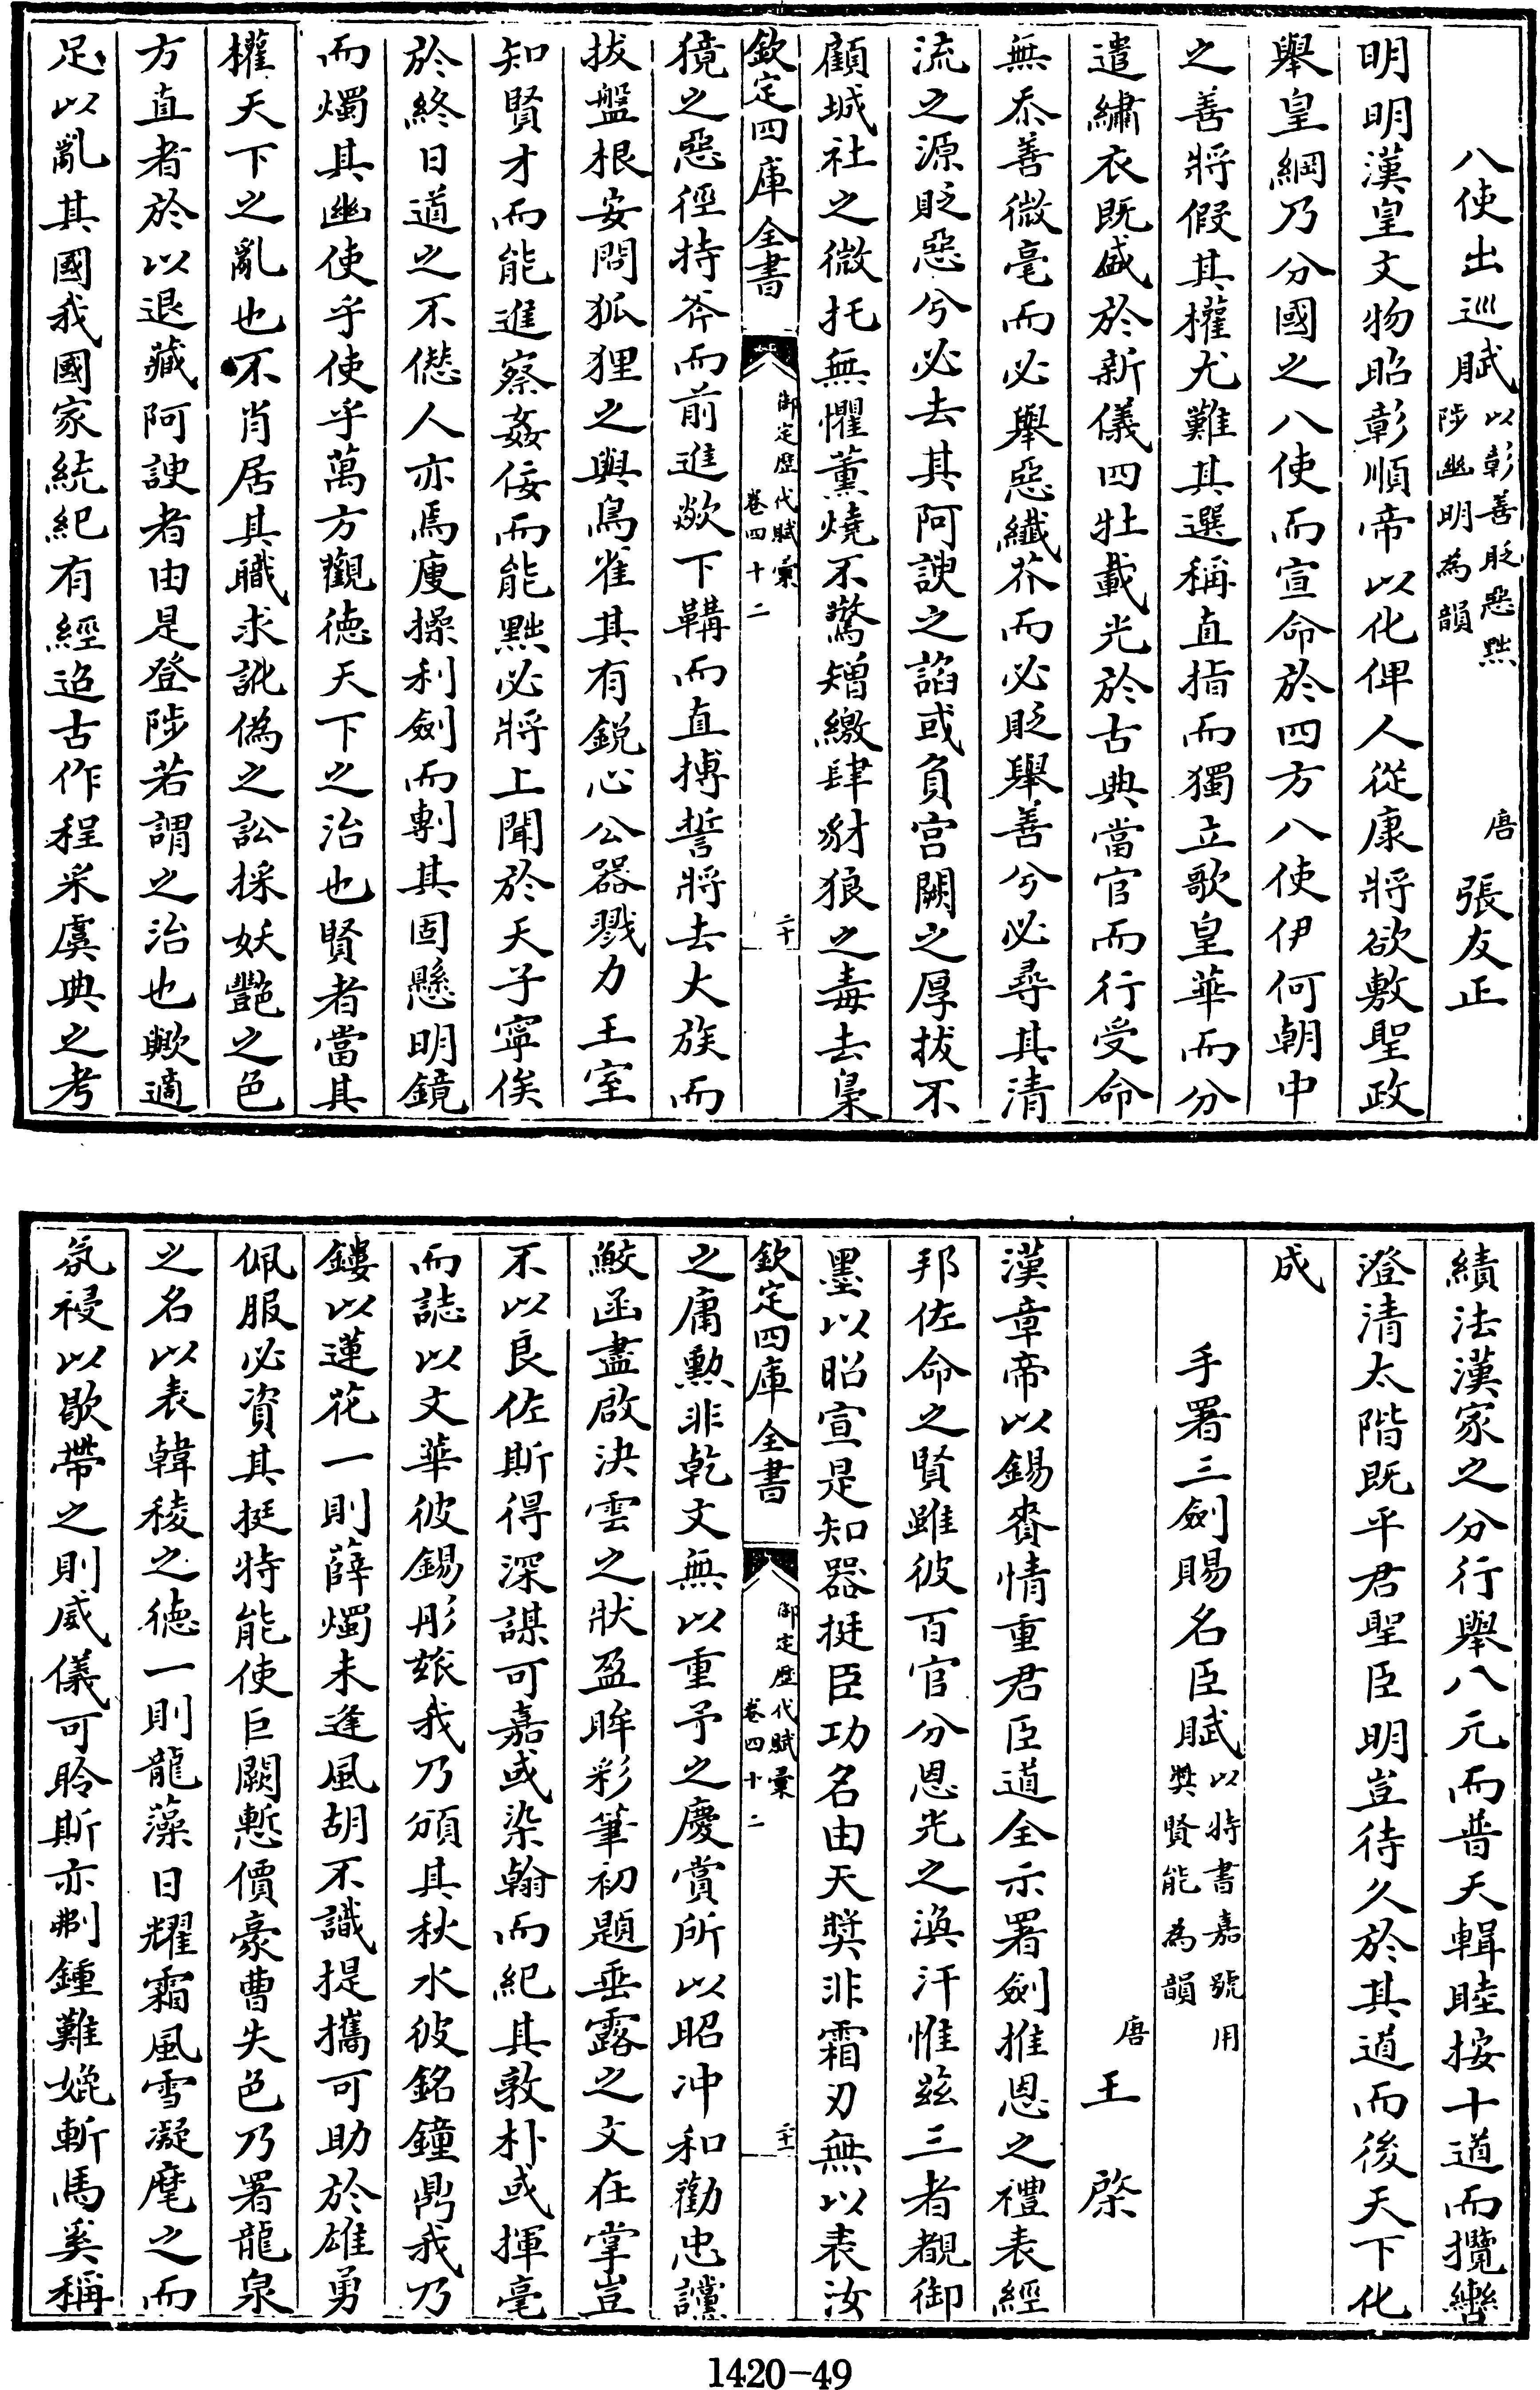 八使出巡賦以彰善貶惡黜陟幽明為韻 唐 張友正
明明漢皇文物昭彰順帝以化俾人從康將欲敷聖政
舉皇綱乃分國之八使而宣命於四方八使伊何朝中
之善將假其權尤難其選稱直指而獨立歌皇華而分
遣繡衣既盛於新儀四牡載光於古典當官而行受命
無忝善微毫而必舉惡纖芥而必貶舉善兮必尋其清
流之源貶惡兮必去其阿諛之諂或負宮闕之厚拔不
顧城社之微托無懼薰燒不驚矰繳肆豺狼之毒去梟
欽定四庫全書 御定歷代賦彙 卷四十二 二十
獍之惡徑持斧而前進欻下鞲而直摶誓將去大族而
拔盤根安問狐狸之與鳥雀其有銳心公器戮力王室
知賢才而能進察姦佞而能黜必將上聞於天子寧俟
於終日道之不僁人亦焉廋操利劍而剸其固懸明鏡
而燭其幽使乎使乎萬方觀德天下之治也賢者當其
權天下之亂也不肖居其職求訛偽之訟採妖艷之色
方直者於以退藏阿諛者由是登陟若謂之治也歟適
足以亂其國我國家統紀有經追古作程采虞典之考
績法漢家之分行舉八元而普天輯睦按十道而攬轡
澄清太階既平君聖臣明豈待久於其道而後天下化
成
手署三劍賜名臣賦以特書嘉號用奬賢能為韻
唐 王棨
漢章帝以錫賚情重君臣道全示署劍推恩之禮表經
邦佐命之賢雖彼百官分恩光之渙汗惟茲三者覩御
墨以昭宣是知器挺臣功名由天奬非霜刃無以表汝
欽定四庫全書 御定歷代賦彙 卷四十二 二十一
之庸勲非乾文無以重予之慶賞所以昭冲和勸忠讜
鮫函盡啟決雲之狀盈眸彩筆初題垂露之文在掌豈
不以良佐斯得深謀可嘉或染翰而紀其敦朴或揮毫
而誌以文華彼錫彤玈我乃頒其秋水彼銘鐘鼎我乃
鏤以蓮花一則薛燭未逢風胡不識提攜可助於雄勇
佩服必資其挺特能使巨闕慙價豪曹失色乃署龍泉
之名以表韓稜之德一則龍藻日耀霜風雪凝麾之而
氛祲以歇帶之則威儀可矜斯亦剸鍾難媲斬馬奚稱
1420-49